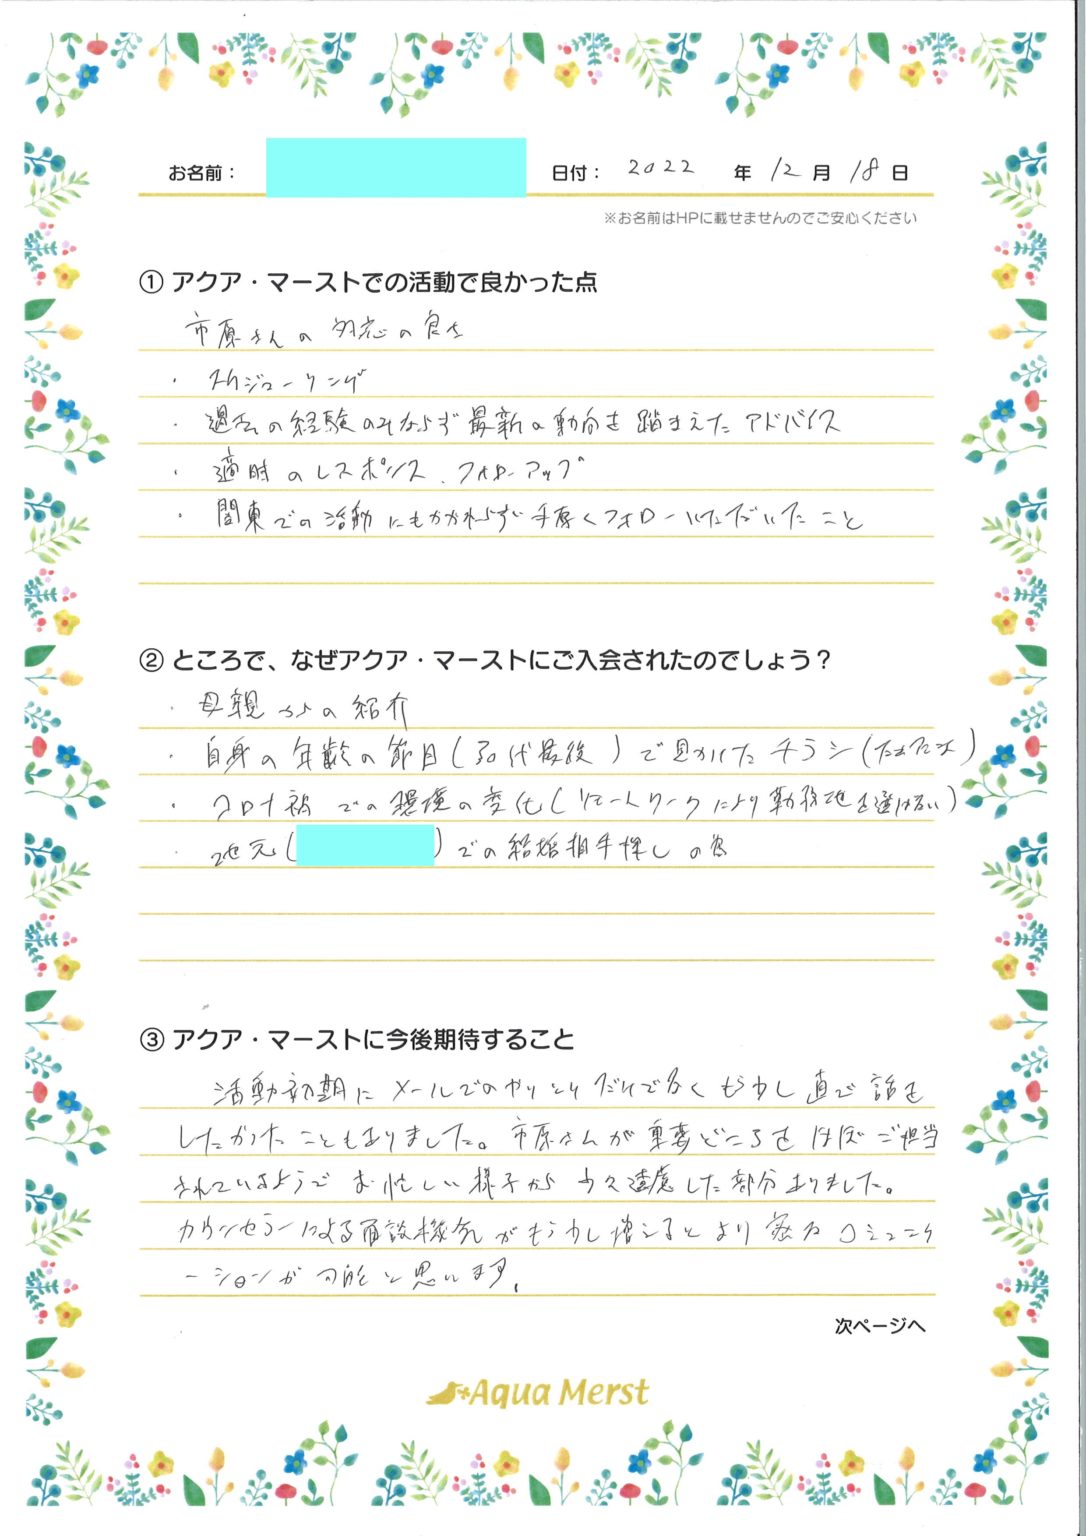 お名前： 日付： 2022 年 12 月 18 日
※お名前はHPに載せませんのでご安心ください
① アクア・マーストでの活動で良かった点
市原さんの対応の良さ
・スケジューリング
・過去の経験のみならず最新の動向を踏まえたアドバイス
・適時のレスポンス、フォローアップ
・関東での活動にもかかわらず手厚くフォローいただいたこと
② ところで、なぜアクア・マーストにご入会されたのでしょう？
・母親からの紹介
・自身の年齢の節目(30代最後)で見かけたチラシ(たまたま)
・コロナ禍での環境の変化(リモートワークにより勤務地を選ばない)
・地元( )での結婚相手探しの為
③ アクア・マーストに今後期待すること
活動初期にメールでのやりとりだけでなくもう少し直で話を
したかったこともありました。市原さんが重要どころをほぼご担当
されているようでお忙しい様子から少々遠慮した部分ありました。
カウンセラーによる面談機会がもう少し増えるとより密なコミュニケ
ーションが可能と思います。
次ページへ
Aqua Merst